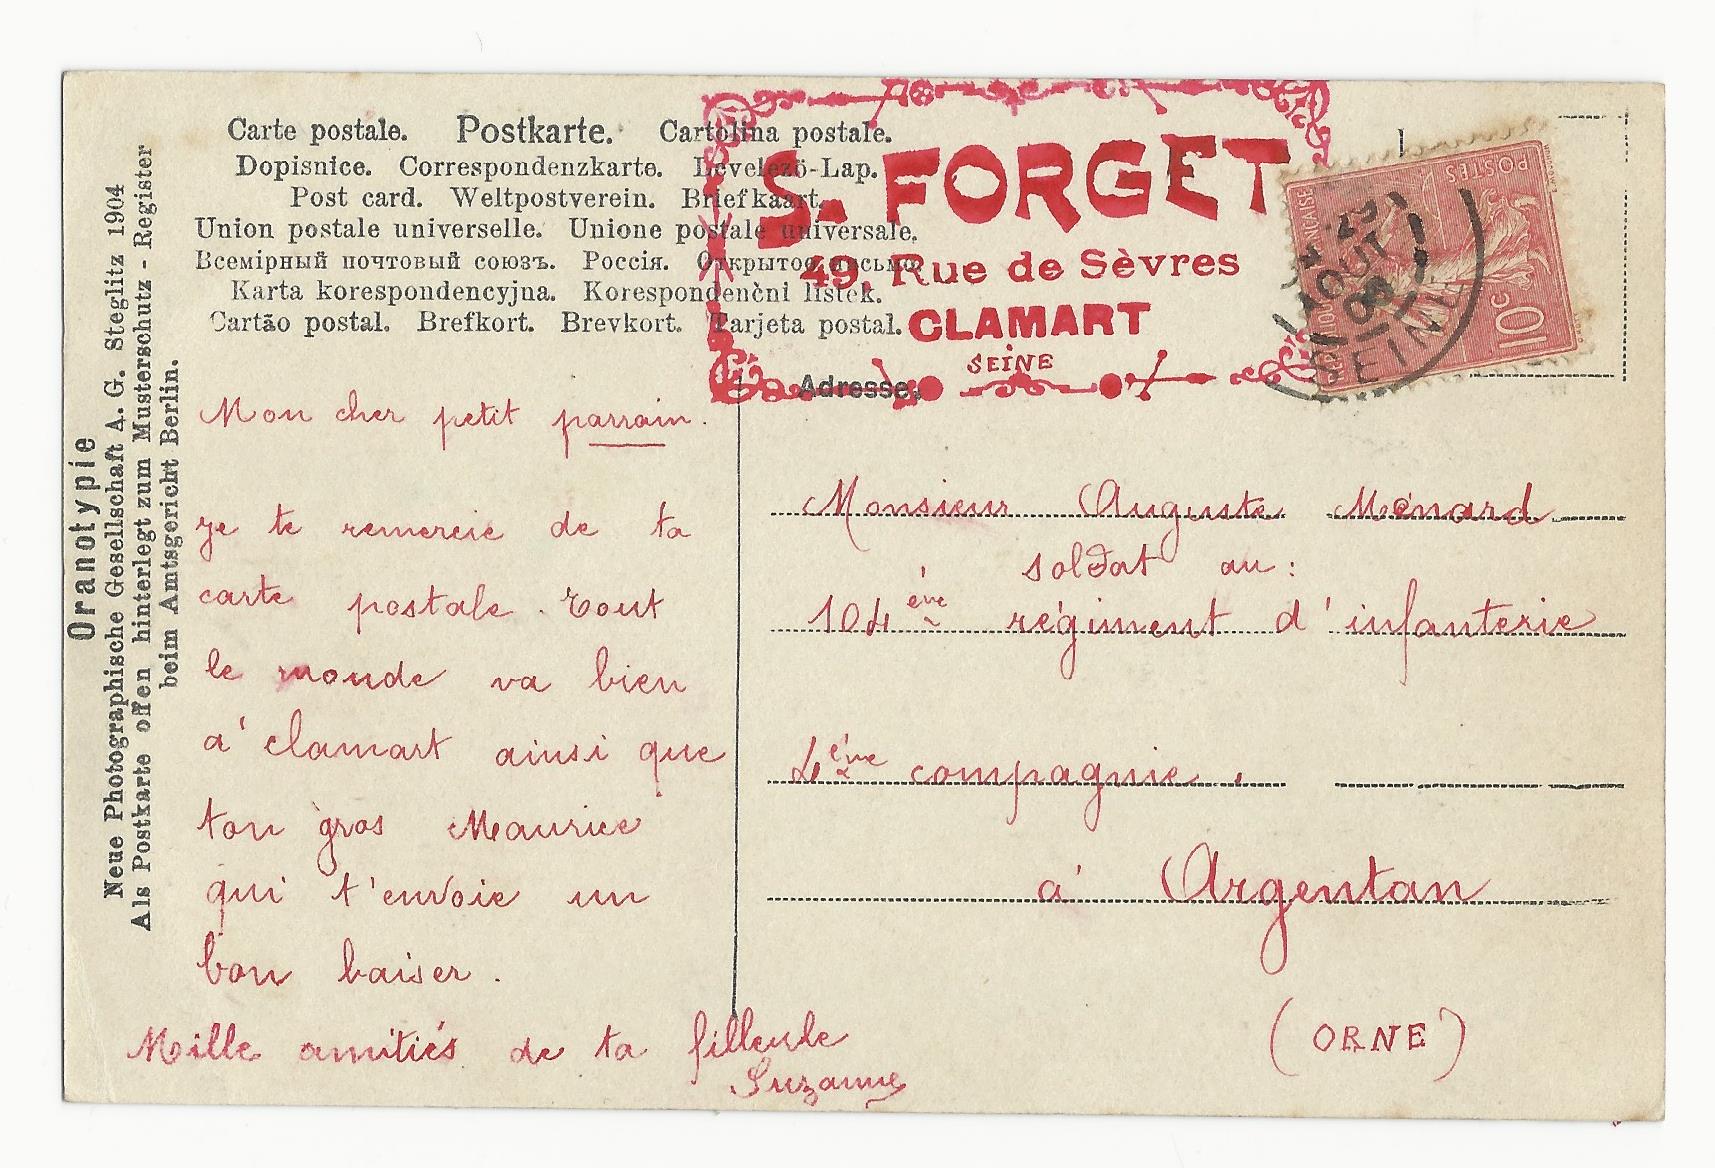 Carte postale. Postkarte. Cartolina postale.
Dopisnice. Correspondenzkarte. Levelező-Lap.
Post card. Weltpostverein. Briefkaart.
Union postale universelle. Unione postale universale.
Всемірный почтовый союзъ. Россія. Открытое письмо.
Karta korespondencyjna. Korespondenční lístek.
Cartão postal. Brefkort. Brevkort. Tarjeta postal.
S. FORGET
49, Rue de Sèvres
CLAMART
SEINE
POSTES
10c
29
AOUT
06
SEINE
Oranotypie
Neue Photographische Gesellschaft A. G. Steglitz 1904
Als Postkarte offen hinterlegt zum Musterschutz - Register
beim Amtsgericht Berlin.
Mon cher petit parrain.
je te remercie de ta
carte postale. Tout
le monde va bien
à clamart ainsi que
ton gros Maurice
qui t'envoie un
bon baiser.
Mille amitiés de ta filleule
Suzanne
Adresse.
Monsieur Auguste Ménard
soldat au:
104ème régiment d'infanterie
4ème compagnie.
à Argentan
(ORNE)